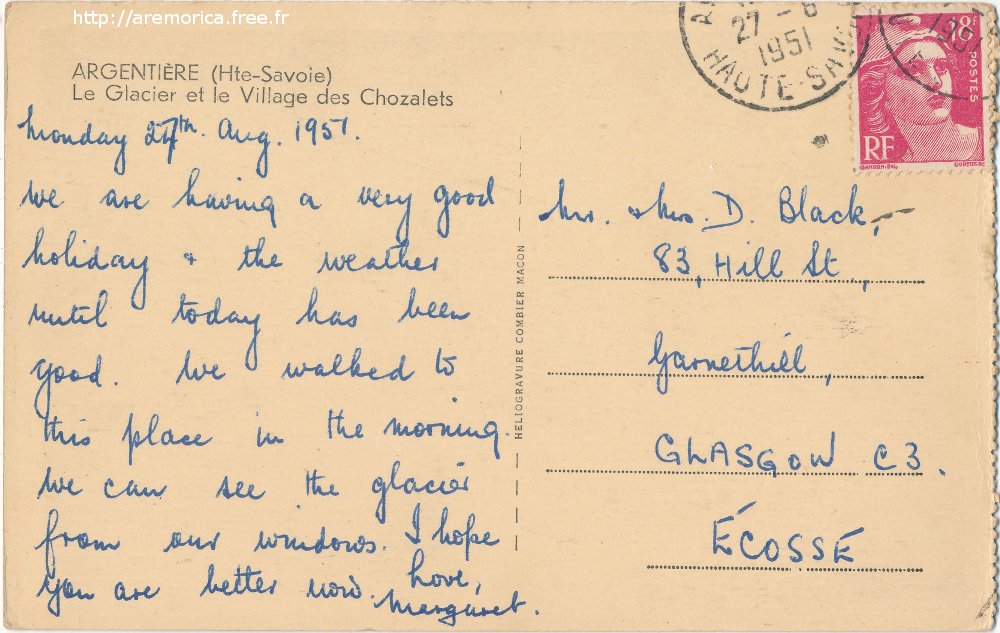 http://aremorica.free.fr
ARGENTIÈRE (Hte-Savoie)
Le Glacier et le Village des Chozalets
Monday 27th. Aug. 1951.
We are having a very good
holiday & the weather
until today has been
good. We walked to
this place in the morning.
We can see the glacier
from our windows. I hope
you are better now. Love,
Margaret.
HELIOGRAVURE COMBIER MACON
27 - 8
1951
HAUTE-SAV
18f
POSTES
RF
1951
Mr. & Mrs. D. Black,
83, Hill St,
Garnethill,
GLASGOW C3.
ÉCOSSE